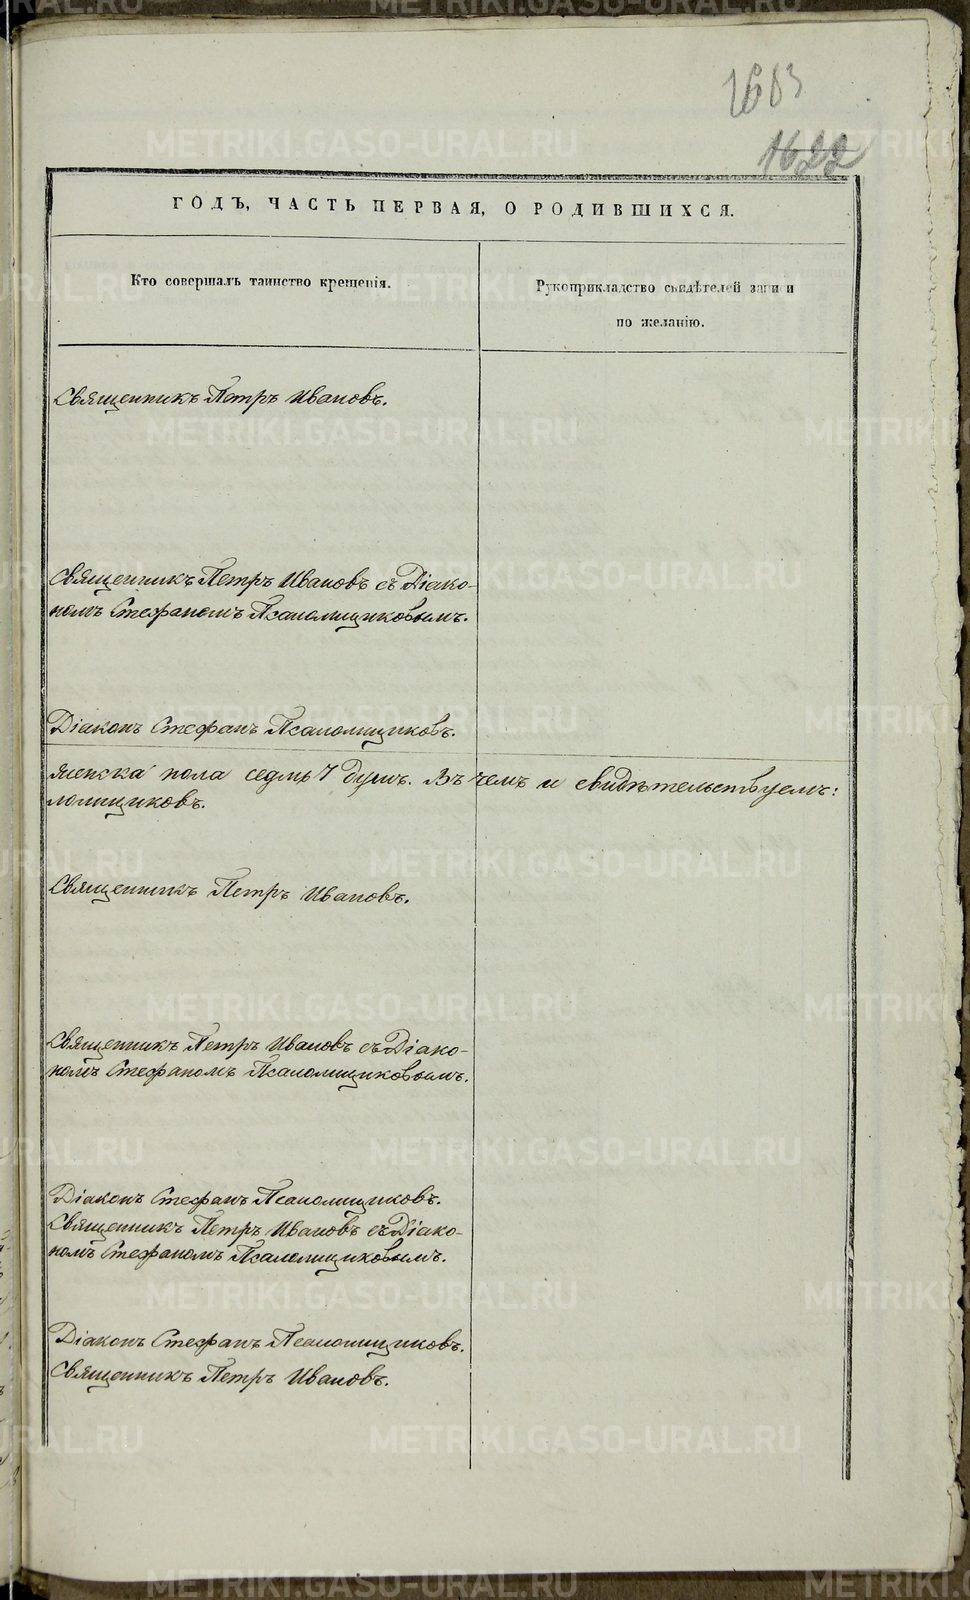 1603
1622
ГОДЪ, ЧАСТЬ ПЕРВАЯ, О РОДИВШИХСЯ.
Кто совершалъ таинство крещенія.
Рукоприкладство свидѣтелей записи
по желанію.
Священникъ Петръ Ивановъ.
Священникъ Петръ Ивановъ съ Діако-
номъ Стефаномъ Псаломщиковымъ.
Діаконъ Стефанъ Псаломщиковъ.
женска пола седмь 7 душъ. Въ чемъ и свидѣтельствуемъ:
ломщиковъ.
Священникъ Петръ Ивановъ.
Священникъ Петръ Ивановъ съ Діако-
номъ Стефаномъ Псаломщиковымъ.
Діаконъ Стефанъ Псаломщиковъ.
Священникъ Петръ Ивановъ съ Діако-
номъ Стефаномъ Псаломщиковымъ.
Діаконъ Стефанъ Псаломщиковъ.
Священникъ Петръ Ивановъ.
METRIKI.GASO-URAL.RU